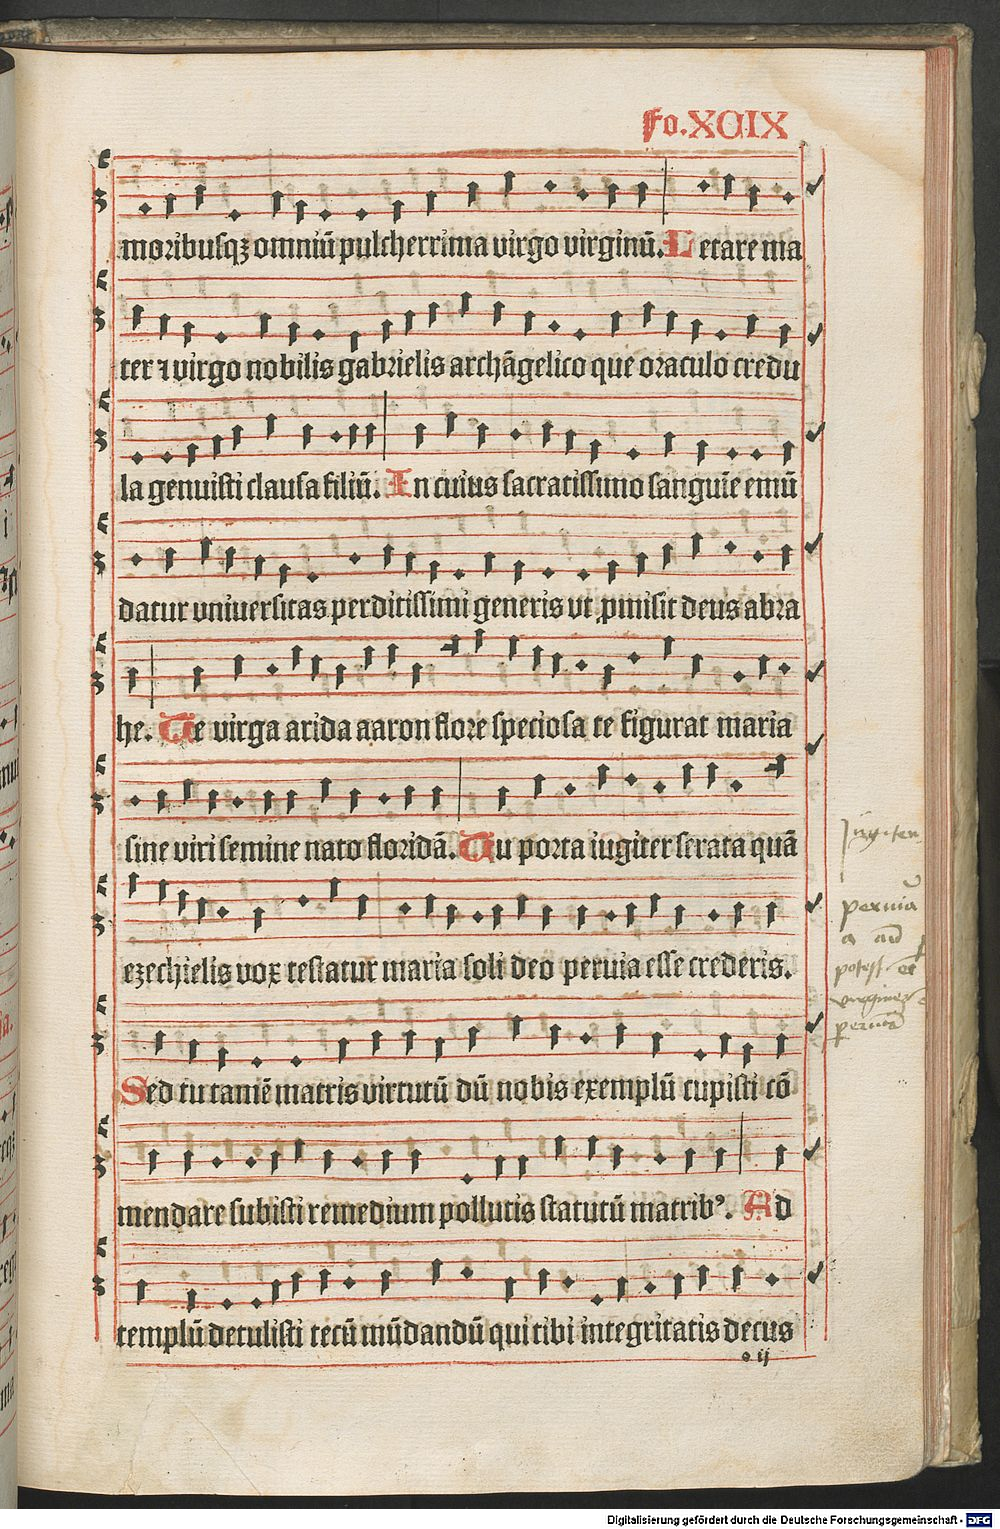 Fo. XCIX
moribusqʒ omniū pulcherrima virgo virginū. Letare ma
ter ⁊ virgo nobilis gabrielis archāgelico que oraculo credu
la genuisti clausa filiū. In cuius sacratissimo sanguīe emū
datur vniuersitas perditissimi generis vt ꝓmisit deus abra
he. Te virga arida aaron flore speciosa te figurat maria
sine viri semine nato floridā. Tu porta iugiter serata quā
ezechielis vox testatur maria soli deo peruia esse crederis.
Sed tu tamē matris virtutū dū nobis exemplū cupisti cō
mendare subisti remedium pollutis statutū matribꝰ. Ad
templū detulisti tecū mūdandū qui tibi integritatis decus
o ij
peruiā
potest
Digitalisierung gefördert durch die Deutsche Forschungsgemeinschaft - DFG